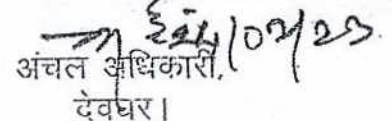 /02/23.
अंचल अधिकारी,
देवघर।